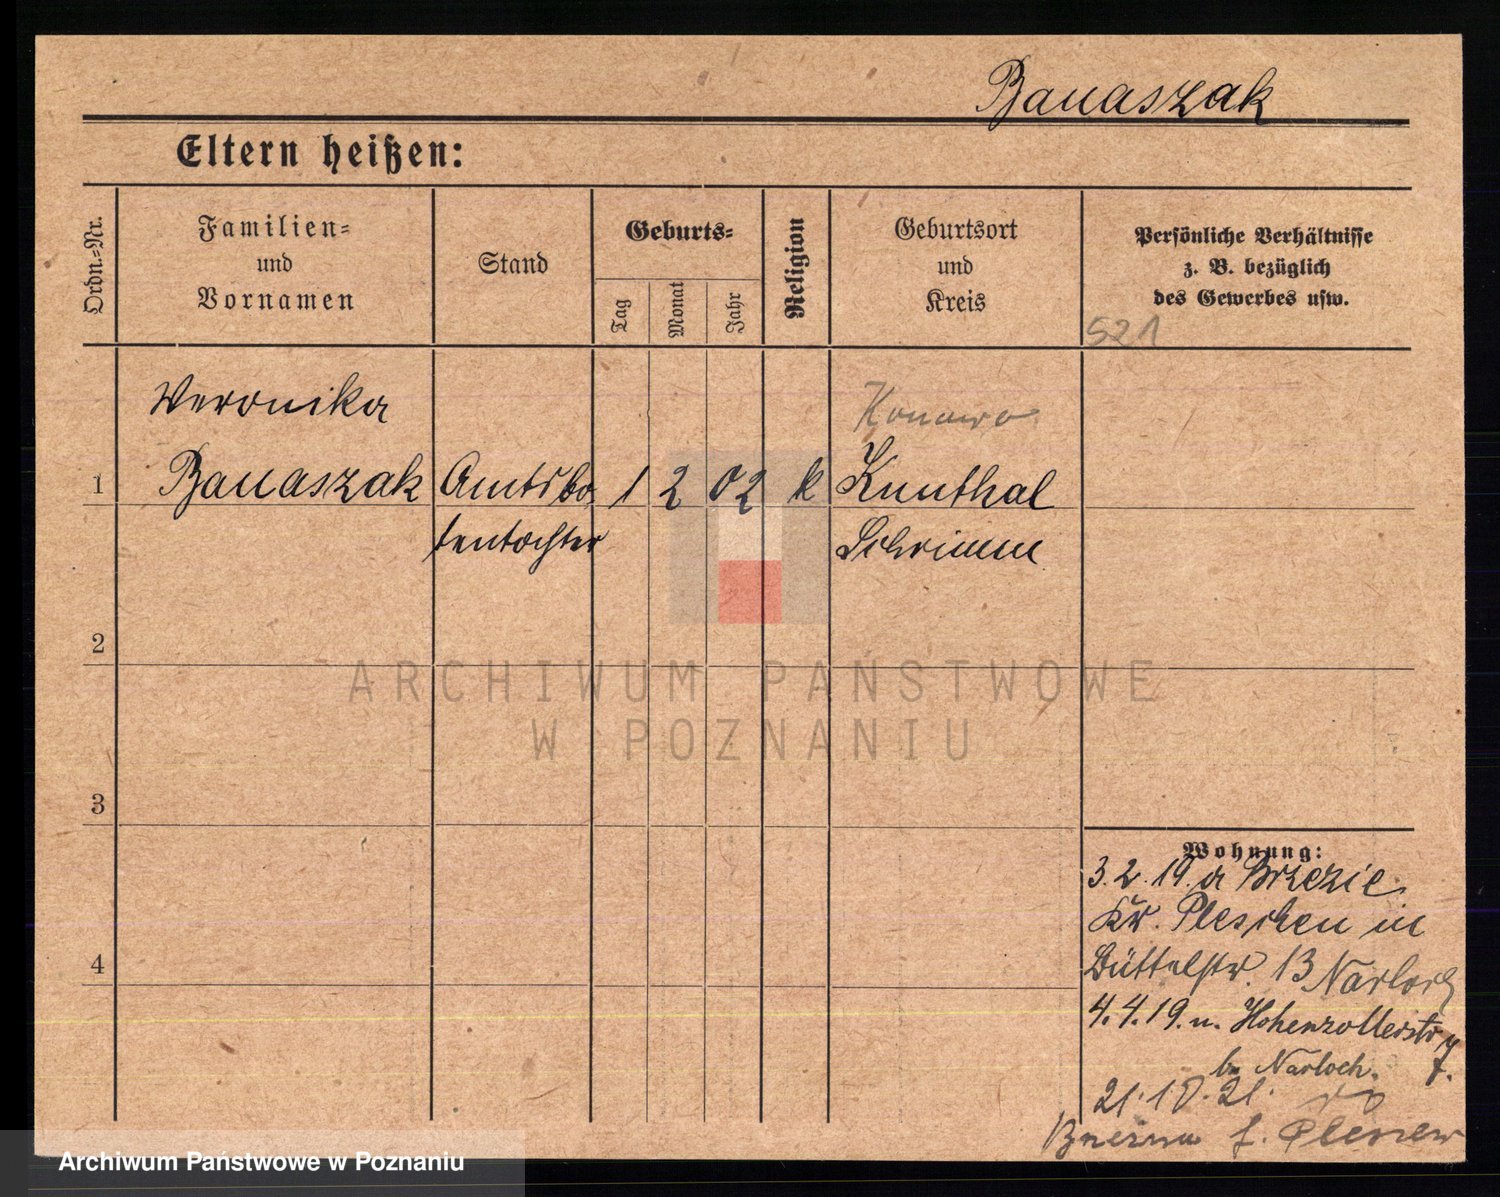 Banaszak
Eltern heißen:
Ordn.-Nr.
Familien-
und
Vornamen
Stand
Geburts-
Tag
Monat
Jahr
Religion
Geburtsort
und
Kreis
Persönliche Verhältnisse
z. B. bezüglich
des Gewerbes usw.
521
Veronika
Konowo
1 Banaszak Amtsbo 1 2 02 k Kunthal
tentochter Schrimm
2
ARCHIWUM PAŃSTWOWE
W POZNANIU
3
Wohnung:
3.2.19. a Brzezie
Kr. Pleschen in
4 Büttelstr. 13 Narloch
4.4.19. n. Hohenzollerstr 7.
b. Narloch.
21.10.21.
Archiwum Państwowe w Poznaniu